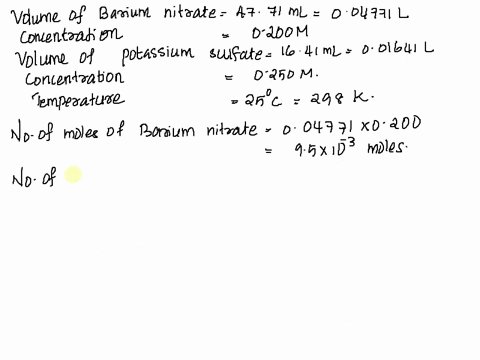 Volume of Barium nitrate = 47.71 mL = 0.04771 L
Concentration = 0.200 M
Volume of potassium sulfate = 16.41 mL = 0.01641 L
Concentration = 0.250 M.
Temperature = 25°C = 298 K.
No. of moles of Barium nitrate = 0.04771 x 0.200
= 9.5 x 10⁻³ moles.
No. of